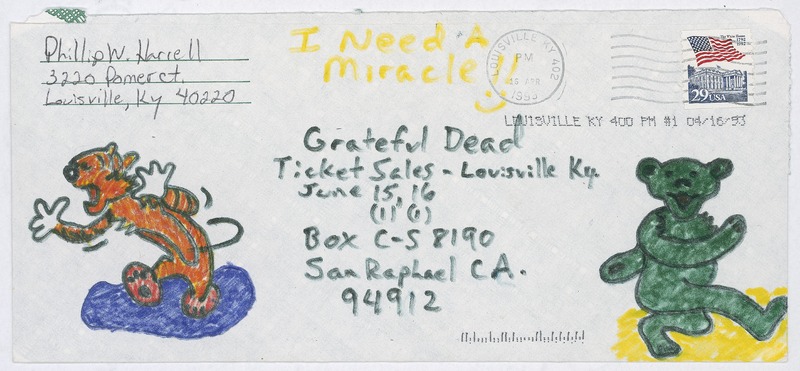 Phillip W. Harrell
3220 Pomer ct.
Louisville, Ky 40220
I Need A
Miracle!!
LOUISVILLE KY 402
PM
16 APR
1993
The White House
1792 1992
29 USA
LOUISVILLE KY 400 PM #1 04/16/93
Grateful Dead
Ticket Sales - Louisville Ky.
June 15, 16
(1) (1)
Box C-S 8190
San Raphael CA.
94912